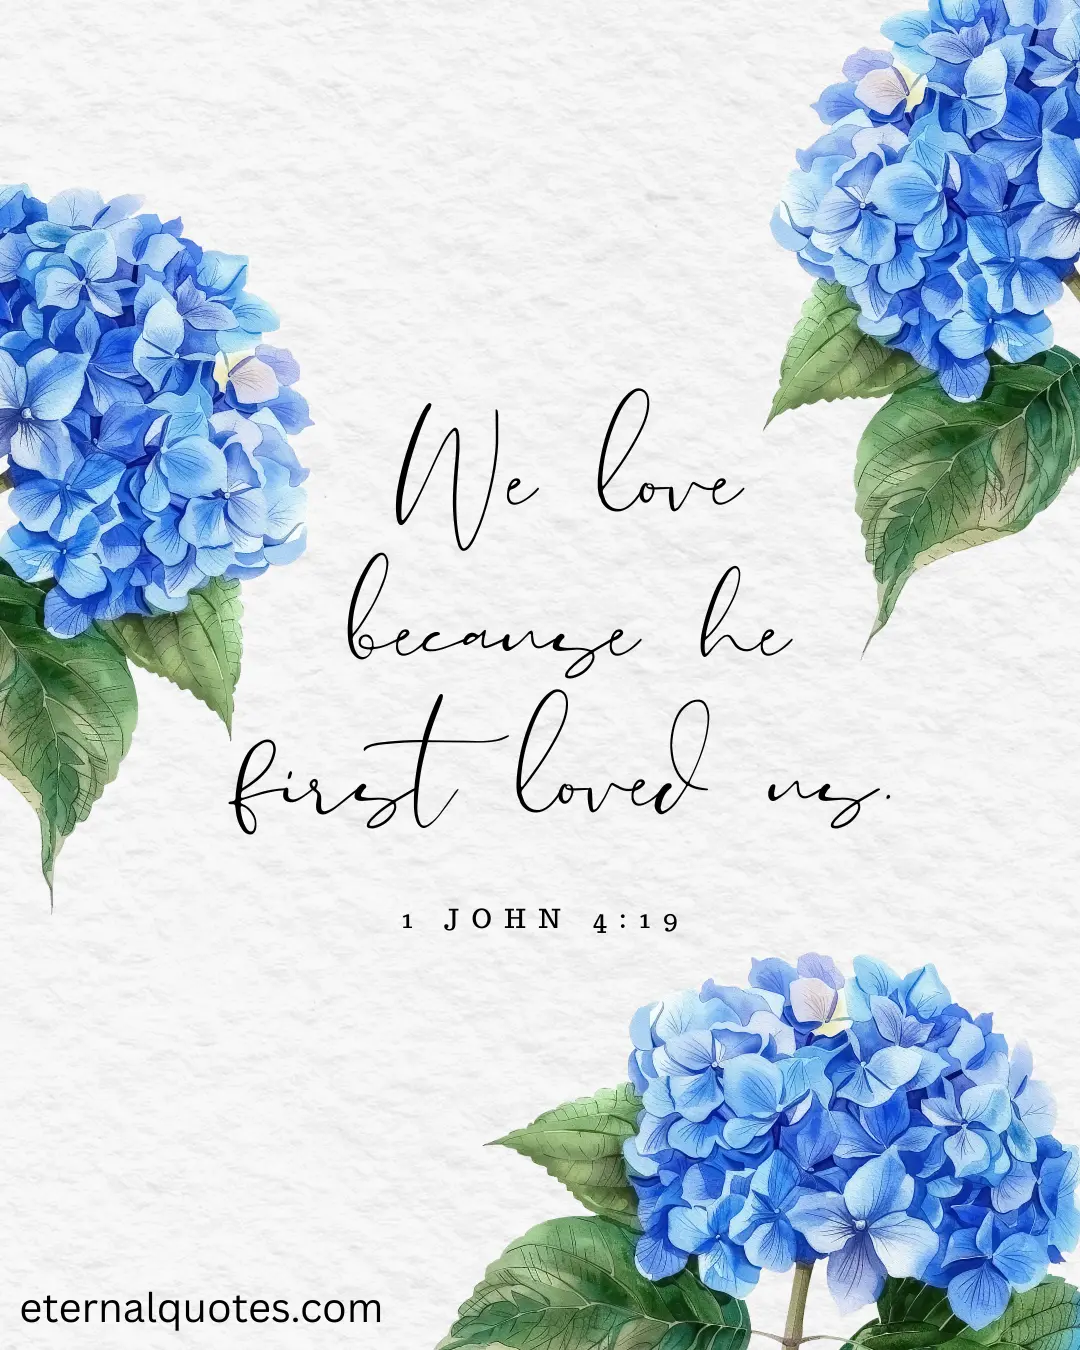 We love
because he
first loved us.
1 JOHN 4:19
eternalquotes.com